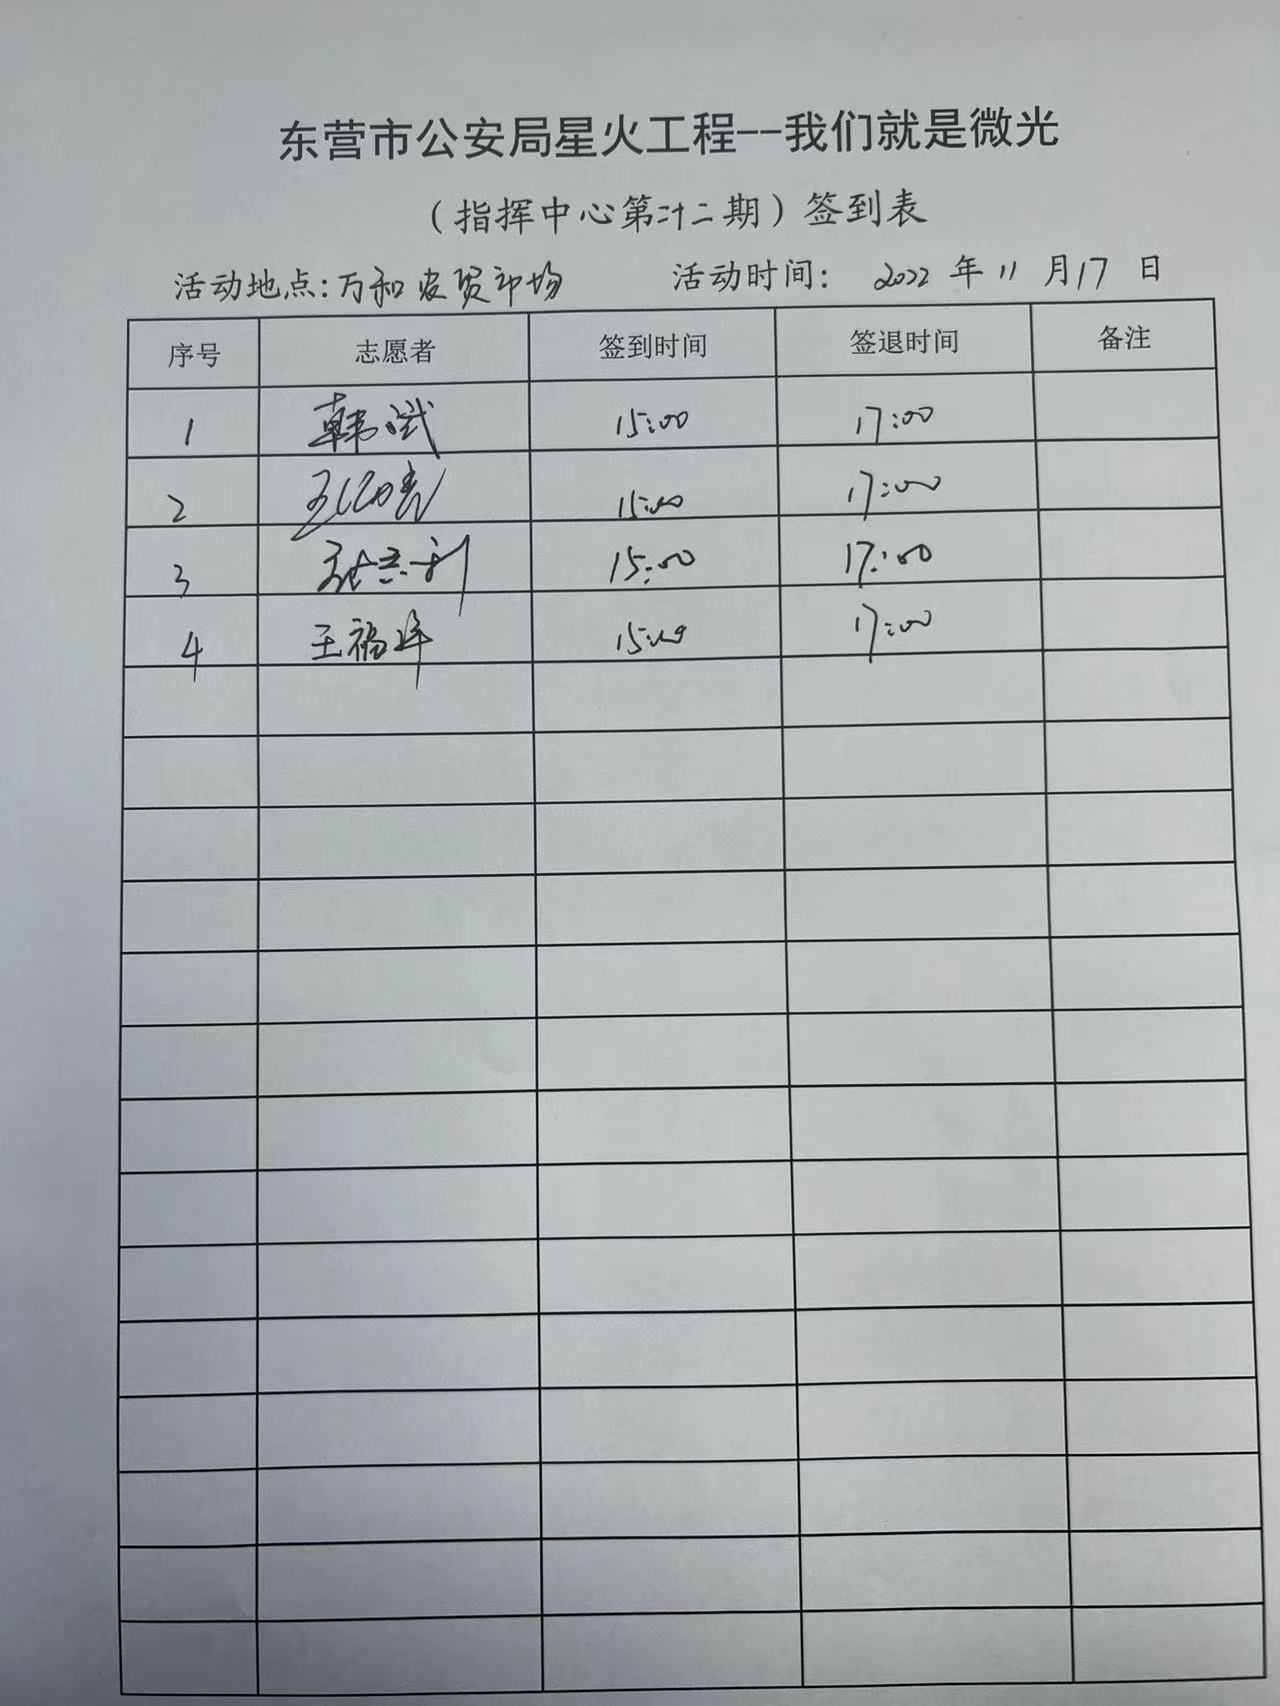 东营市公安局星火工程--我们就是微光
(指挥中心第廿二期)签到表
活动地点:万和农贸市场 活动时间: 2022 年 11 月 17 日
序号 志愿者 签到时间 签退时间 备注
1 韩斌 15:00 17:00
2 15:00 17:00
3 15:00 17:00
4 王福 15:00 17:00